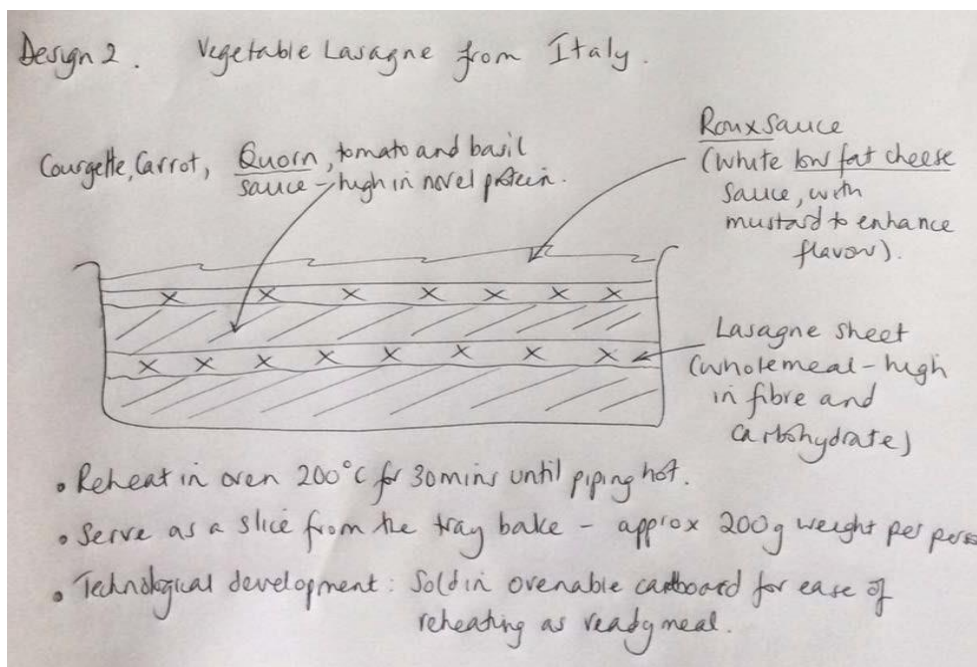 Design 2. Vegetable Lasagne from Italy.
Courgette, Carrot, Quorn, tomato and basil
sauce - high in novel protein.
Roux sauce
(white low fat cheese
sauce, with
mustard to enhance
flavour).
Lasagne sheet
(wholemeal - high
in fibre and
carbohydrate)
• Reheat in oven 200°C for 30mins until piping hot.
• Serve as a slice from the tray bake - approx 200g weight per
• Technological development: Sold in ovenable cardboard for ease of
reheating as ready meal.